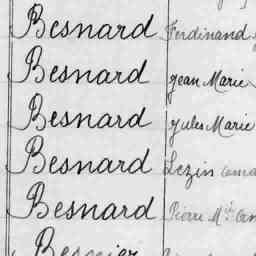 Besnard Ferdinand
Besnard Jean Marie
Besnard Jules Marie
Besnard Lezin
Besnard Pierre M.